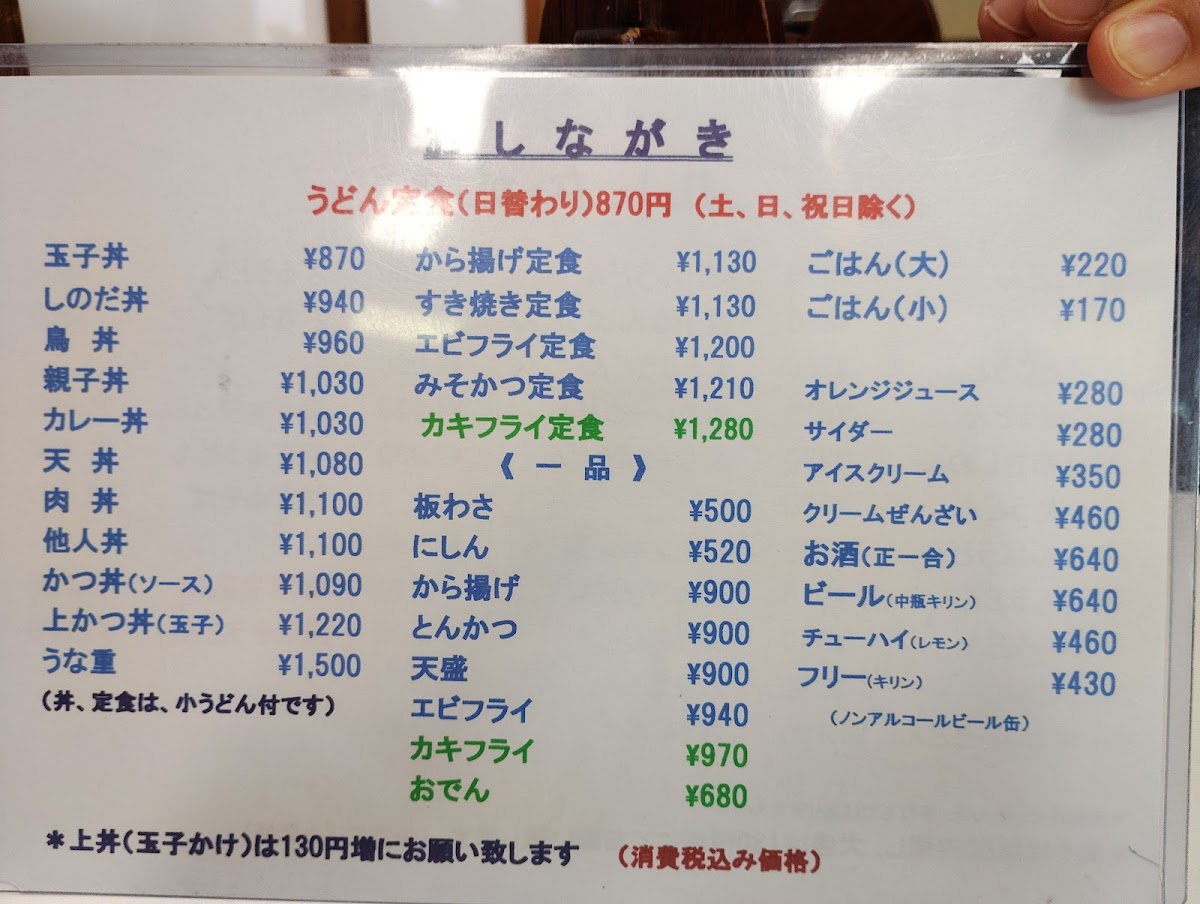 しながき
うどん定食(日替わり)870円 (土、日、祝日除く)
玉子丼 ¥870
しのだ丼 ¥940
鳥 丼 ¥960
親子丼 ¥1,030
カレー丼 ¥1,030
天 丼 ¥1,080
肉 丼 ¥1,100
他人丼 ¥1,100
かつ丼(ソース) ¥1,090
上かつ丼(玉子) ¥1,220
うな重 ¥1,500
(丼、定食は、小うどん付です)
から揚げ定食 ¥1,130
すき焼き定食 ¥1,130
エビフライ定食 ¥1,200
みそかつ定食 ¥1,210
カキフライ定食 ¥1,280
《 一 品 》
板わさ ¥500
にしん ¥520
から揚げ ¥900
とんかつ ¥900
天盛 ¥900
エビフライ ¥940
カキフライ ¥970
おでん ¥680
ごはん(大) ¥220
ごはん(小) ¥170
オレンジジュース ¥280
サイダー ¥280
アイスクリーム ¥350
クリームぜんざい ¥460
お酒(正一合) ¥640
ビール(中瓶キリン) ¥640
チューハイ(レモン) ¥460
フリー(キリン) ¥430
(ノンアルコールビール缶)
*上丼(玉子かけ)は130円増にお願い致します (消費税込み価格)